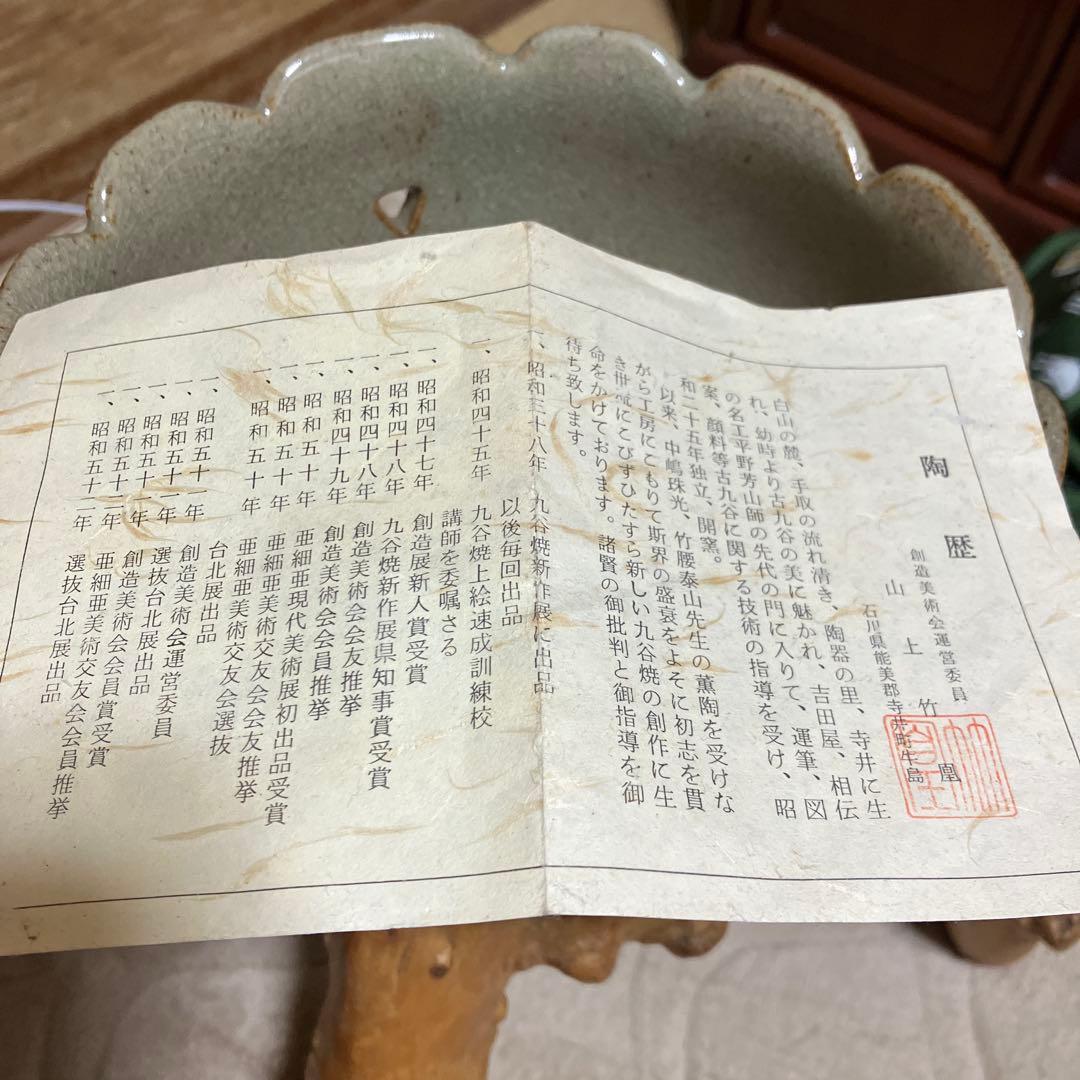 陶歴
創造美術会運営委員
山上竹凰
石川県能美郡寺井町牛島
白山の麓、手取の流れ清き、陶器の里、寺井に生
れ、幼時より古九谷の美に魅かれ、吉田屋、相伝
の名工平野芳山師の先代の門に入りて、運筆、図
案、顔料等古九谷に関する技術の指導を受け、昭
和二十五年独立、開窯。
以来、中嶋珠光、竹腰泰山先生の薫陶を受けな
がら工房にこもりて斯界の盛衰をよそに初志を貫
き世流にこびずひたすら新しい九谷焼の創作に生
命をかけております。諸賢の御批判と御指導を御
待ち致します。
一、昭和三十八年 九谷焼新作展に出品
以後毎回出品
一、昭和四十五年 九谷焼上絵速成訓練校
講師を委嘱さる
一、昭和四十七年 創造展新人賞受賞
一、昭和四十八年 九谷焼新作展県知事賞受賞
一、昭和四十八年 創造美術会会友推挙
一、昭和四十九年 創造美術会会員推挙
一、昭和五十年 亜細亜現代美術展初出品受賞
一、昭和五十年 亜細亜美術交友会会友推挙
一、昭和五十年 亜細亜美術交友会選抜
台北展出品
一、昭和五十一年 創造美術会運営委員
一、昭和五十一年 選抜台北展出品
一、昭和五十一年 創造美術会会員賞受賞
一、昭和五十二年 亜細亜美術交友会会員推挙
一、昭和五十二年 選抜台北展出品